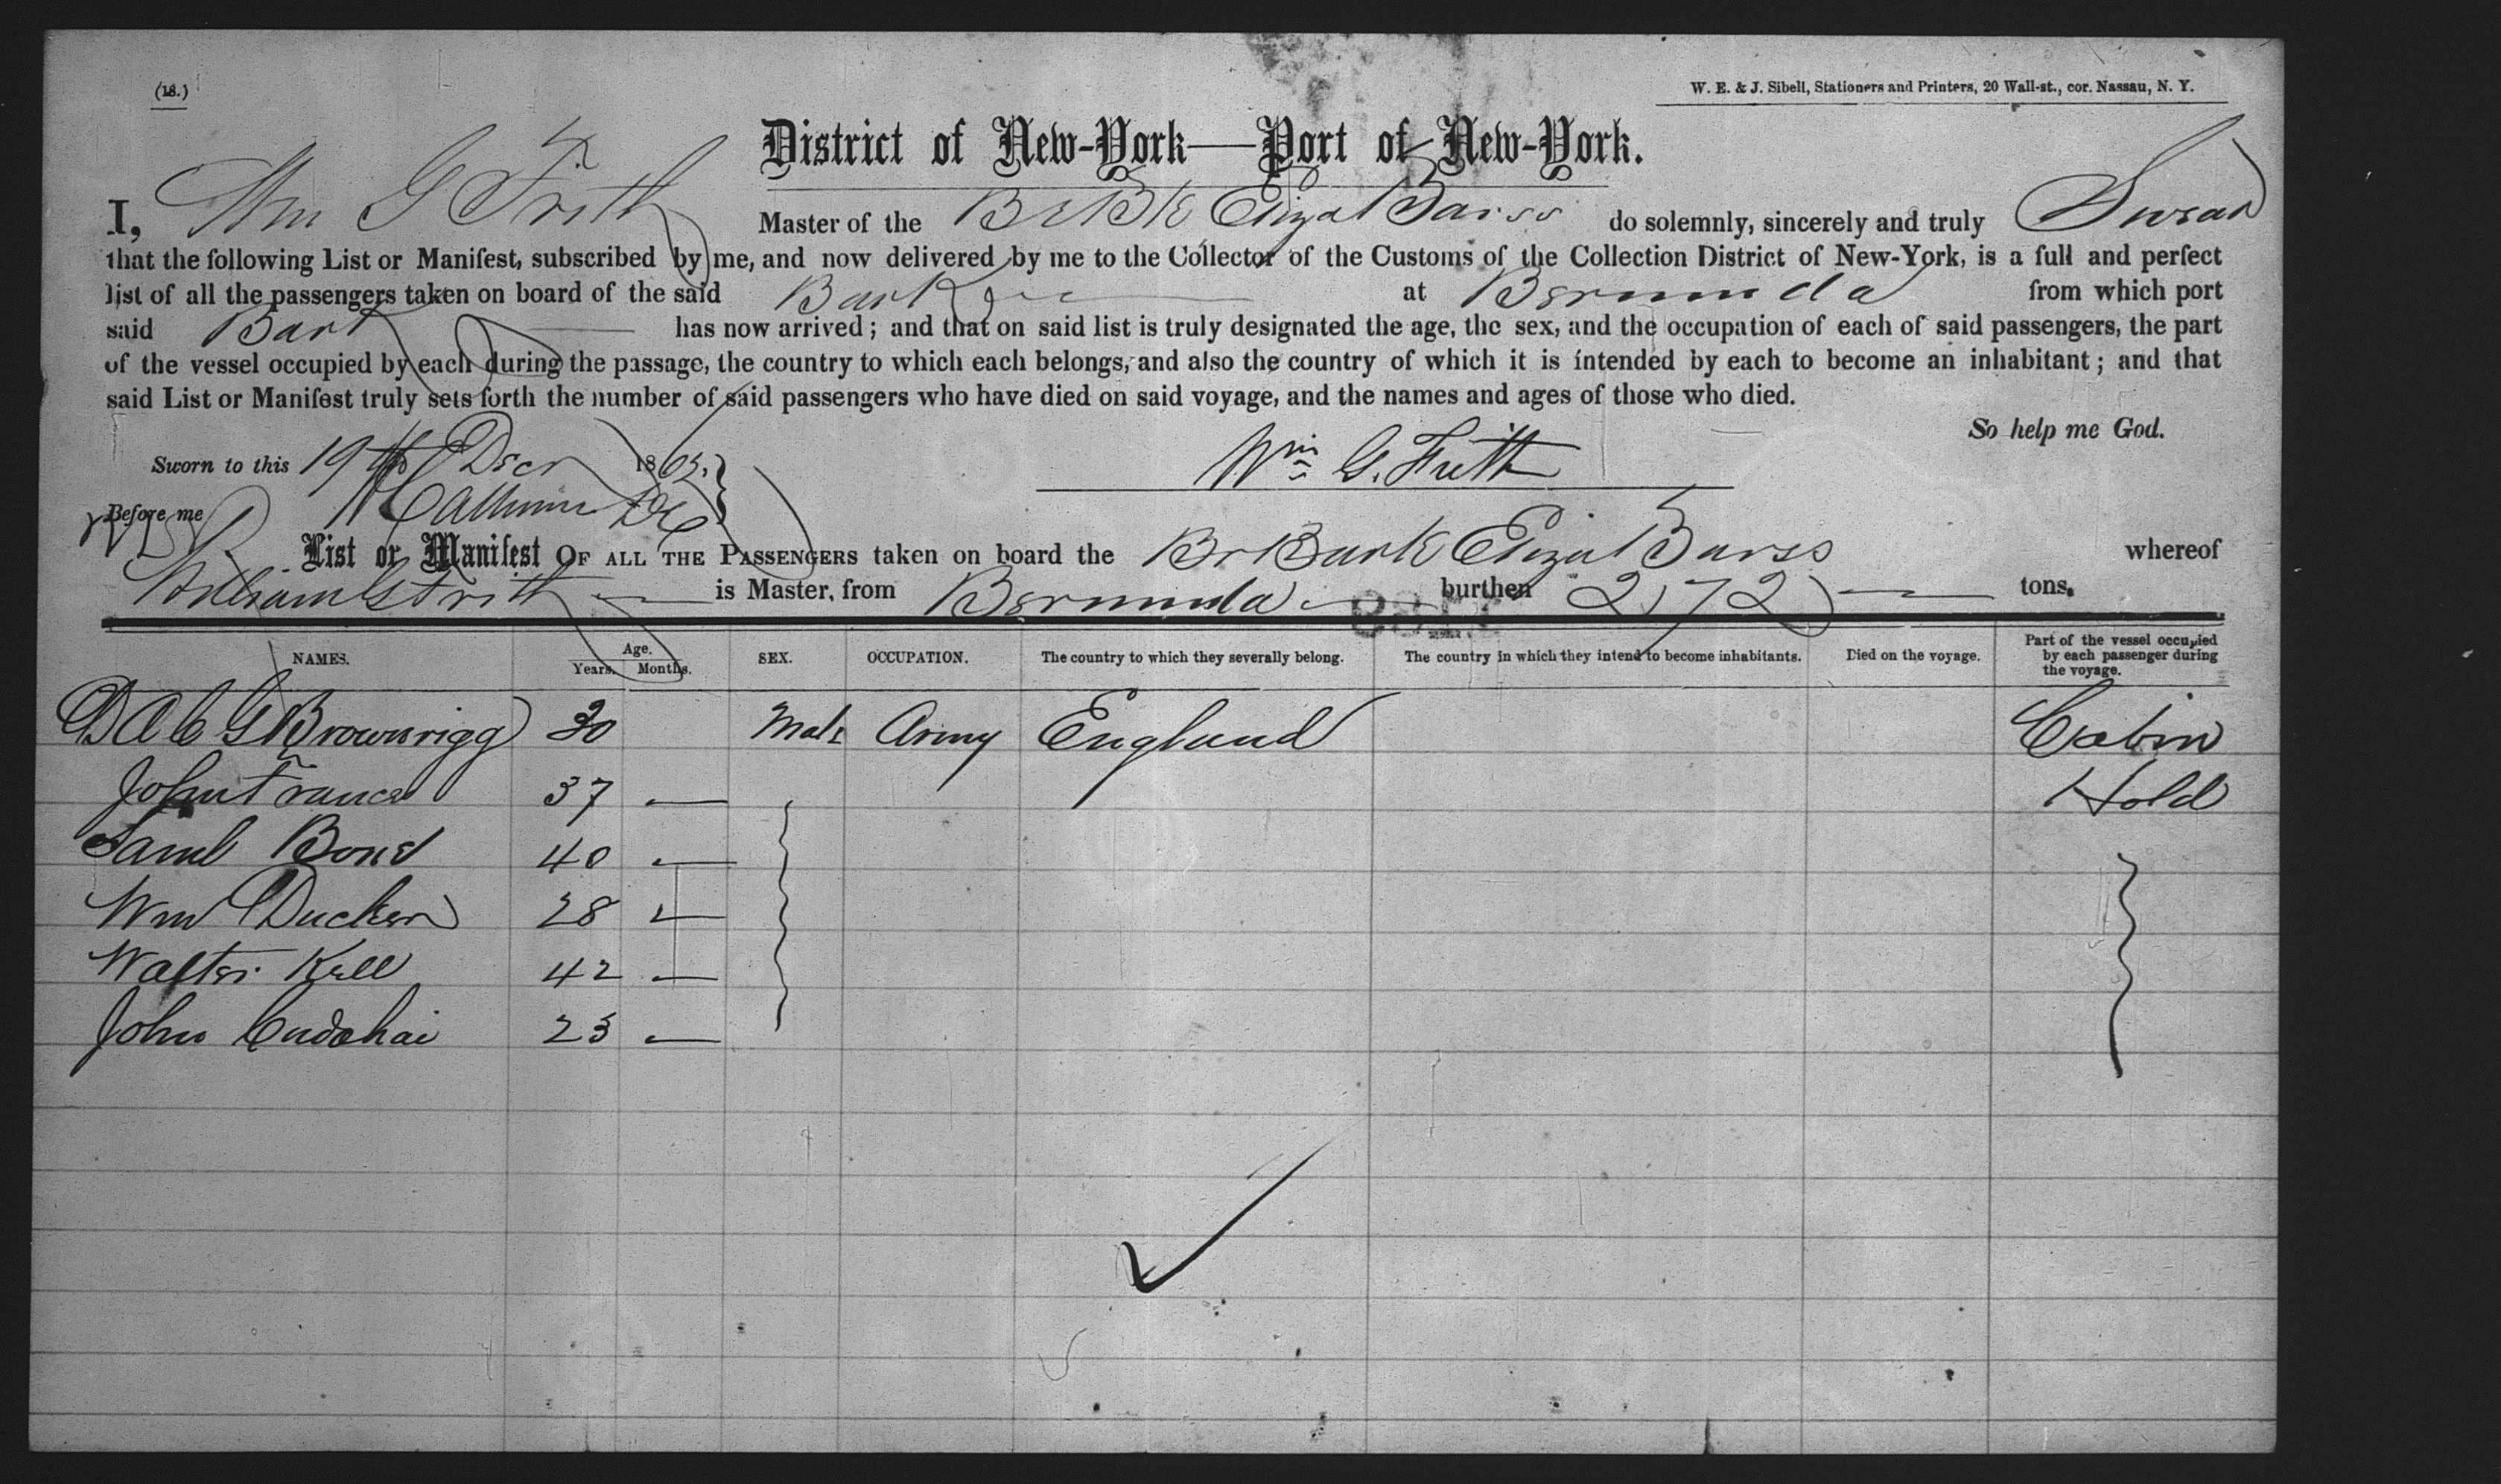 (18.)
W. E. & J. Sibell, Stationers and Printers, 20 Wall-st., cor. Nassau, N. Y.
District of New-York—Port of New-York.
I, Wm G Frith Master of the Br Bk Eliza Barss do solemnly, sincerely and truly Swear
that the following List or Manifest, subscribed by me, and now delivered by me to the Collector of the Customs of the Collection District of New-York, is a full and perfect
list of all the passengers taken on board of the said Bark at Bermuda from which port
said Bark has now arrived; and that on said list is truly designated the age, the sex, and the occupation of each of said passengers, the part
of the vessel occupied by each during the passage, the country to which each belongs, and also the country of which it is intended by each to become an inhabitant; and that
said List or Manifest truly sets forth the number of said passengers who have died on said voyage, and the names and ages of those who died.
So help me God.
Sworn to this 19th Decr 1865. Wm G. Frith
Before me
List or Manifest OF ALL THE PASSENGERS taken on board the Br Bark Eliza Barss whereof
William G Frith is Master, from Bermuda burthen 272 tons.
NAMES. Age. Years. Months. SEX. OCCUPATION. The country to which they severally belong. The country in which they intend to become inhabitants. Died on the voyage. Part of the vessel occupied by each passenger during the voyage.
D A C G Brownrigg 30 Male Army England Cabin
John France 37 — Hold
Saml Bond 40 —
Wm Ducker 28 —
Walter Kell 42 —
John Cudahai 23 —